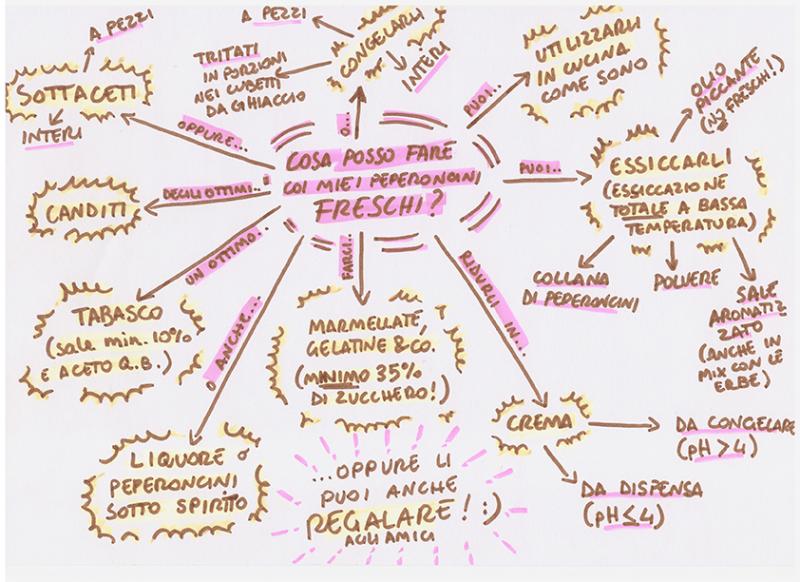 COSA POSSO FARE
COI MIEI PEPERONCINI
FRESCHI?
PUOI...
UTILIZZARLI
IN CUCINA
COME SONO
PUOI..
ESSICCARLI
(ESSICCAZIONE
TOTALE A BASSA
TEMPERATURA)
OLIO
PICCANTE
(NO FRESCHI!)
COLLANA
DI PEPERONCINI
POLVERE
SALE
AROMATIZ
ZATO
(ANCHE IN
MIX CON LE
ERBE)
RIDURLI IN...
CREMA
DA CONGELARE
(pH > 4)
DA DISPENSA
(pH ≤ 4)
FARCI..
MARMELLATE,
GELATINE & CO.
(MINIMO 35%
DI ZUCCHERO!)
O ANCHE...
LIQUORE O
PEPERONCINI
SOTTO SPIRITO
UN OTTIMO..
TABASCO
(sale min. 10%
E ACETO Q.B.)
DEGLI OTTIMI..
CANDITI
OPPURE...
SOTTACETI
A PEZZI
INTERI
O...
CONGELARLI
A PEZZI
TRITATI
IN PORZIONI
NEI CUBETTI
DA GHIACCIO
INTERI
...OPPURE LI
PUOI ANCHE
REGALARE! :)
AGLI AMICI